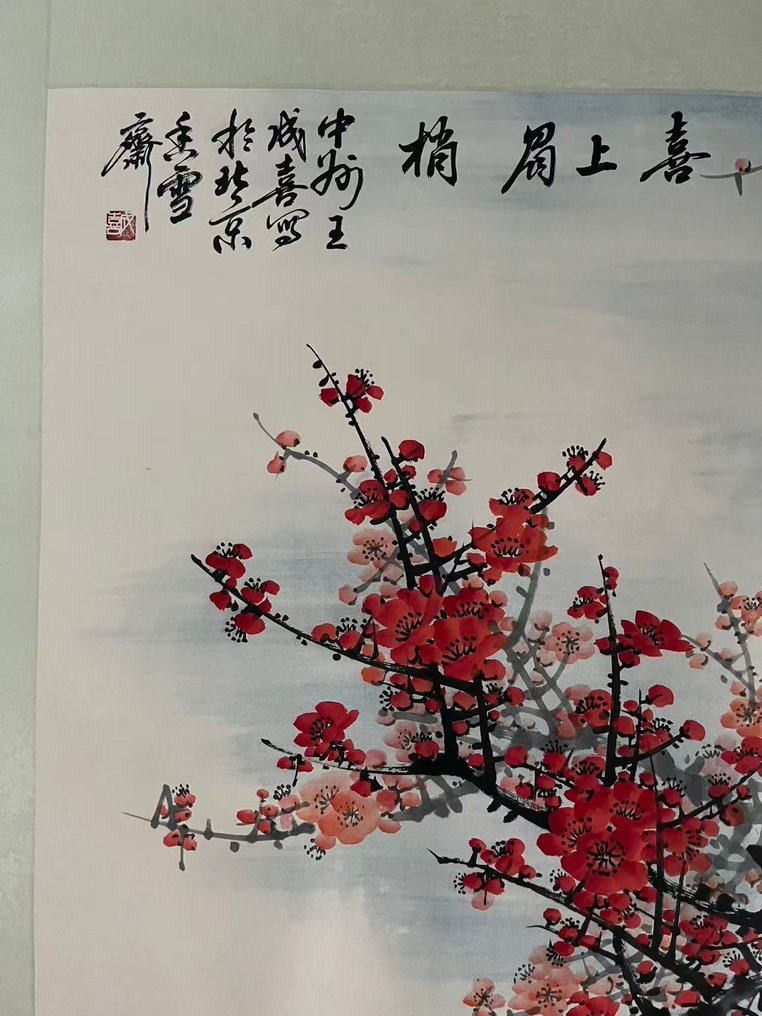 喜上眉梢
中州王
成喜写
於北京
香雪
齋
成喜